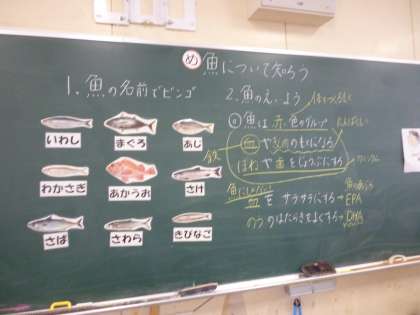 め 魚について知ろう
1. 魚の名前でビンゴ
いわし
まぐろ
あじ
わかさぎ
あかうお
さけ
さば
さわら
きびなご
2. 魚のえいよう
体をつくるもと
魚は赤色のグループ
たんぱくしつ
血やきん肉のもとになる
鉄
ほねや歯をじょうぶにする
カルシウム
血をサラサラにする→EPA
のうのはたらきをよくする→DHA